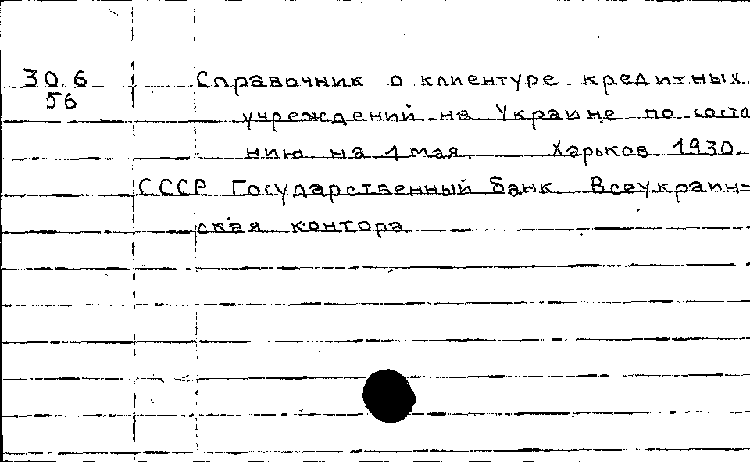 30.6 Справочник о клиентуре кредитных
56
учреждений на Украине по состо
нию на 1 мая Харьков 1930.
СССР Государственный Банк Всеукраин=
ская контора